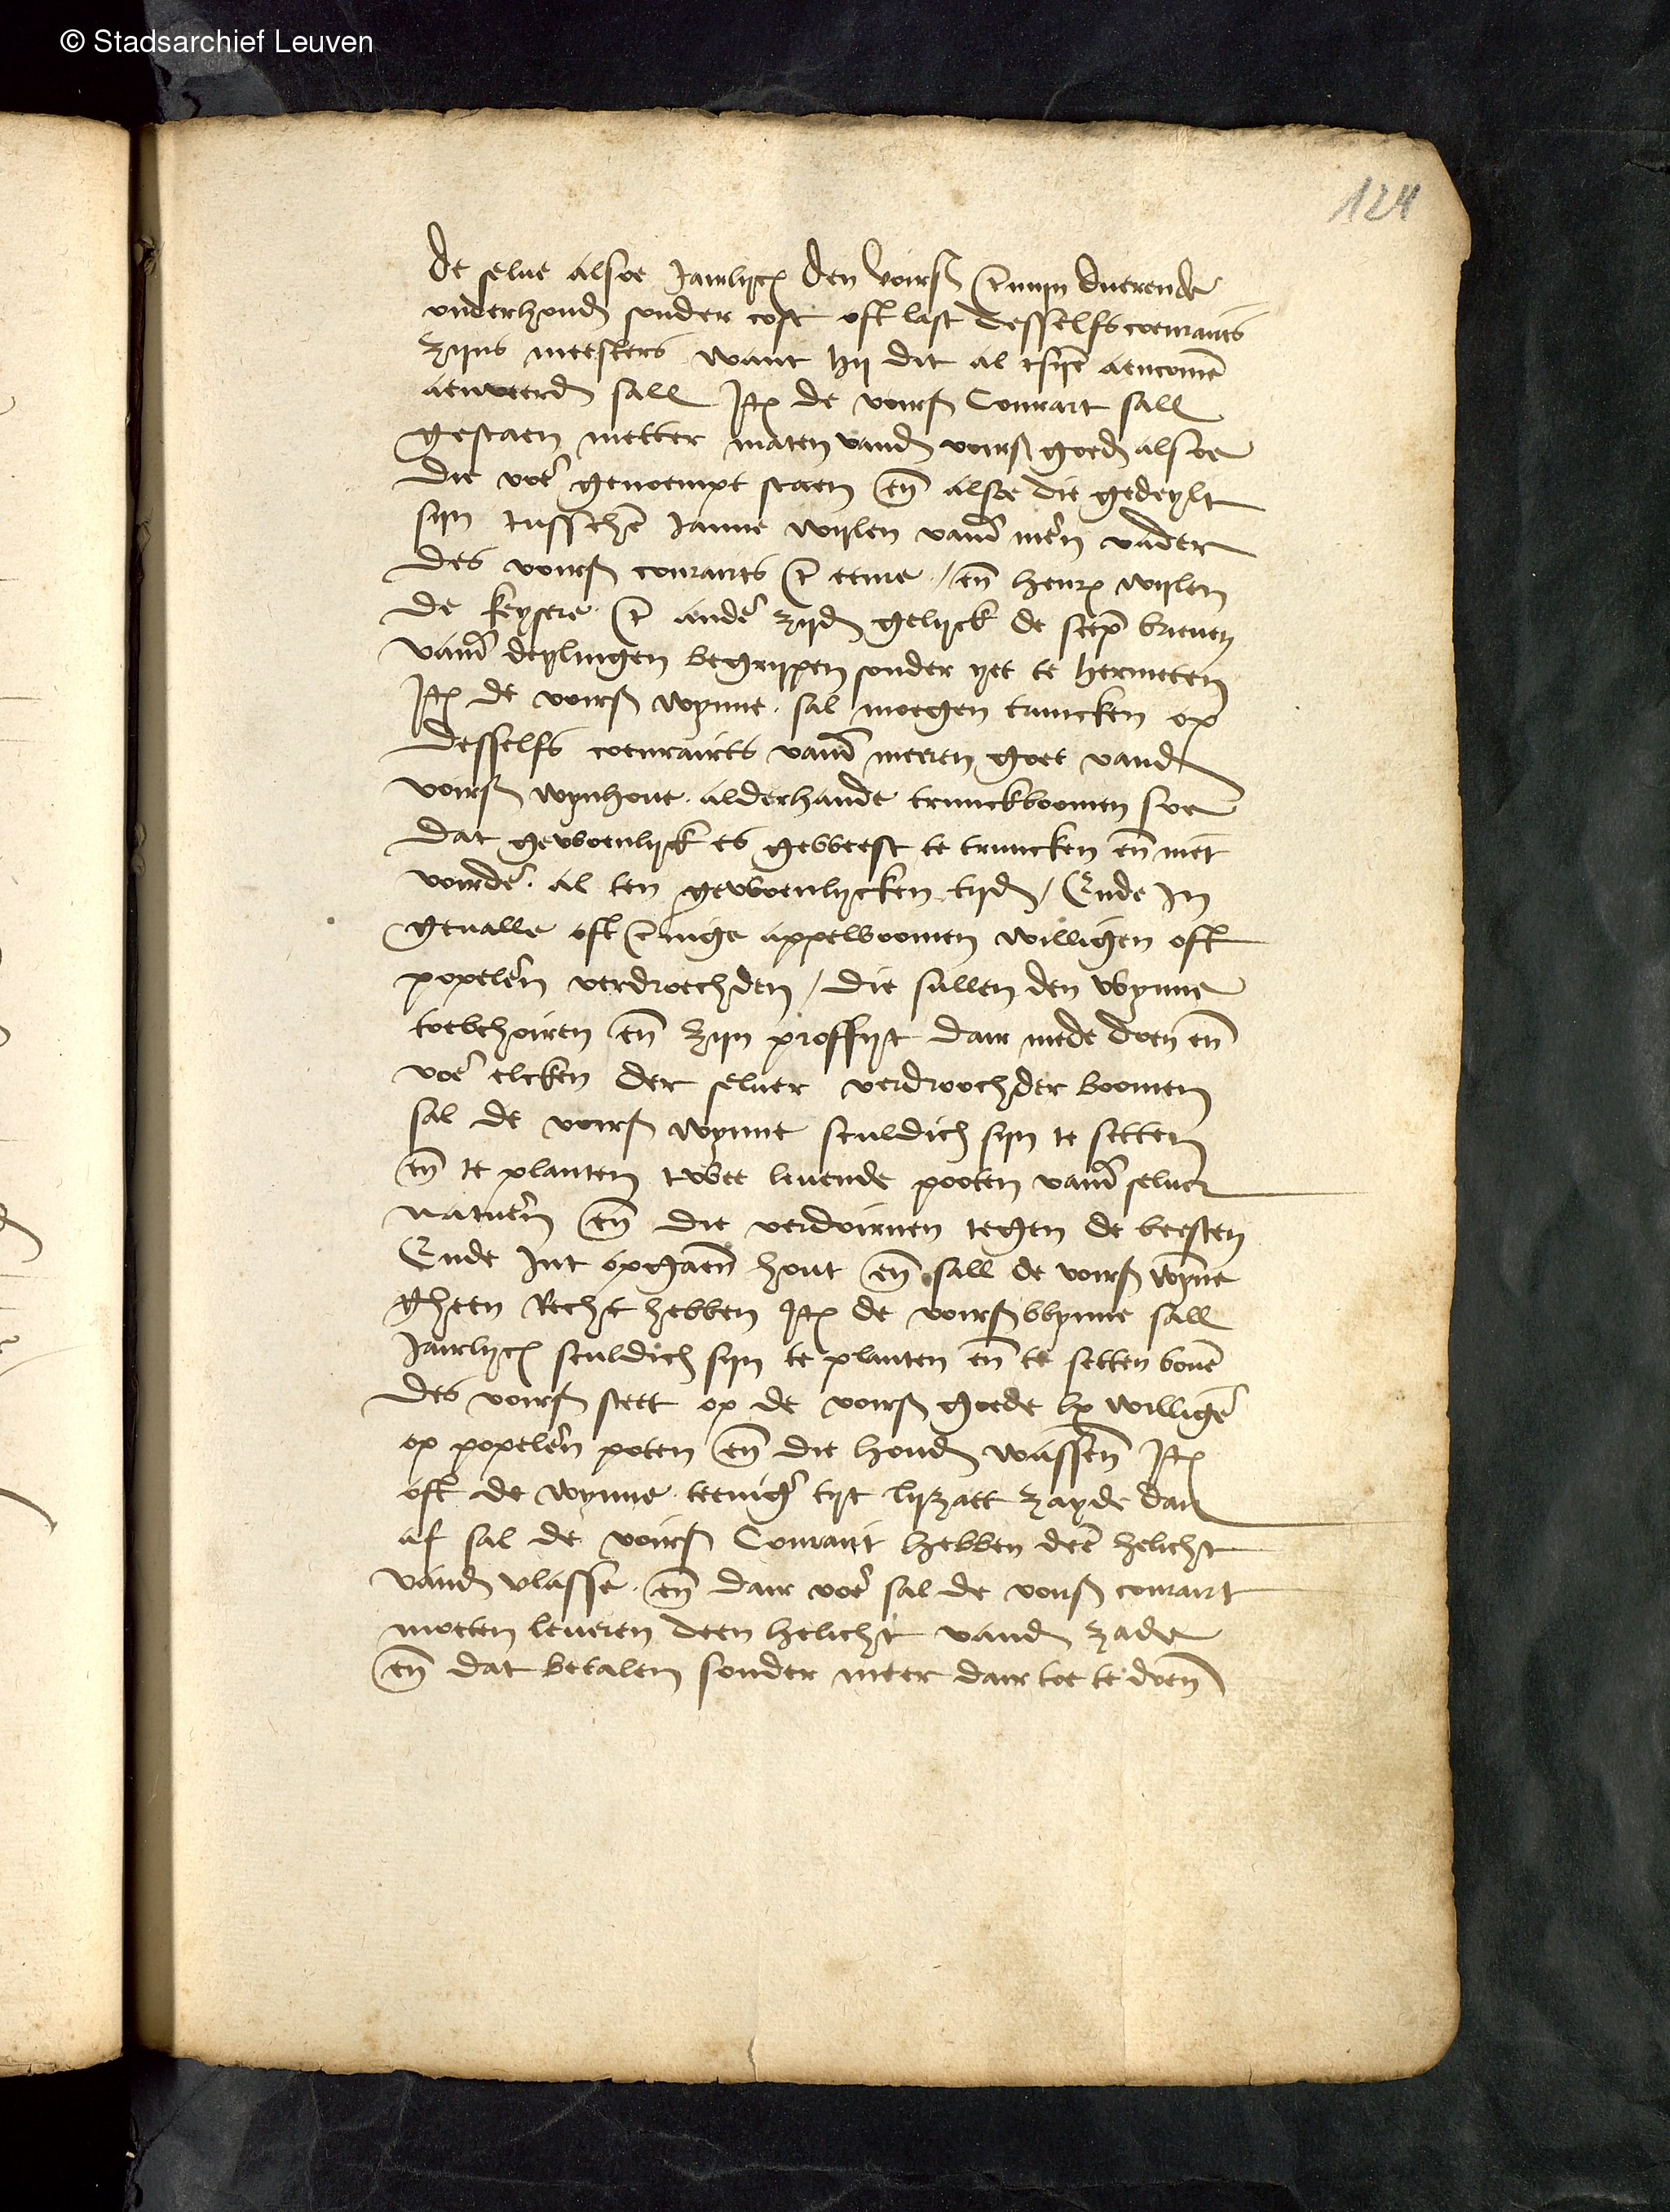 © Stadsarchief Leuven
124
de selve alsoe Jairlijcx den voirs termijn duerende
onderhouden sonder cost oft last desselfs coenraits
zijns meesters want hij dit al tsijne aencomen
aenveerden sall Itē de voirs Conrart sall
gestaen metter maten vanden voirs goeden alsoe
die voer genoempt staen eñ alsoe die gedeylt
sijn tusschē Janne wijlen vander meren vader
des voirs conrarts ter eenre / eñ henrix wijlen
de keysere ter andere zijden gelijck de scep brieven
vander deylingen begrijpen sonder yet te hermeten
Itē de voirs wynne sal moegen truncken op
desselfs coenrairts vander meeren goet vanden
voirs wynhove alderhande trunckboomen soe
dat gewoenlijck es geweest te truncken eñ niet
voirdere al ten gewoenlijcken tijde / Ende In
gevalle oft eenige appelboomen willigen oft
popeleren verdroechden / die sullen den wynne
toebehoiren eñ zijn proffijt dair mede doen eñ
voer elcken der selver verdroochder boomen
sal de voirs wynne sculdich sijn te setten
eñ te planten twee levende pooten vander selver
natueren eñ die verdoirnen tegen de beesten
Ende Int opgaen hout eñ sall de voirs wynne
gheen Recht hebben Itē de voirs wynne sall
Jairlijcx sculdich sijn te planten eñ te setten boven
des voirs steet op de voirs goede lx willigē
op popelerē poten eñ die houden wassen Itē
oft de wynne teeniger tijt lijzaet zayde dair
af sal de voirs Conrairt hebben deen helicht
vanden vlasse eñ dair voer sal de voirs conrairt
moeten leveren deen helicht vanden zade
eñ dat betalen sonder meer dair toe te doen